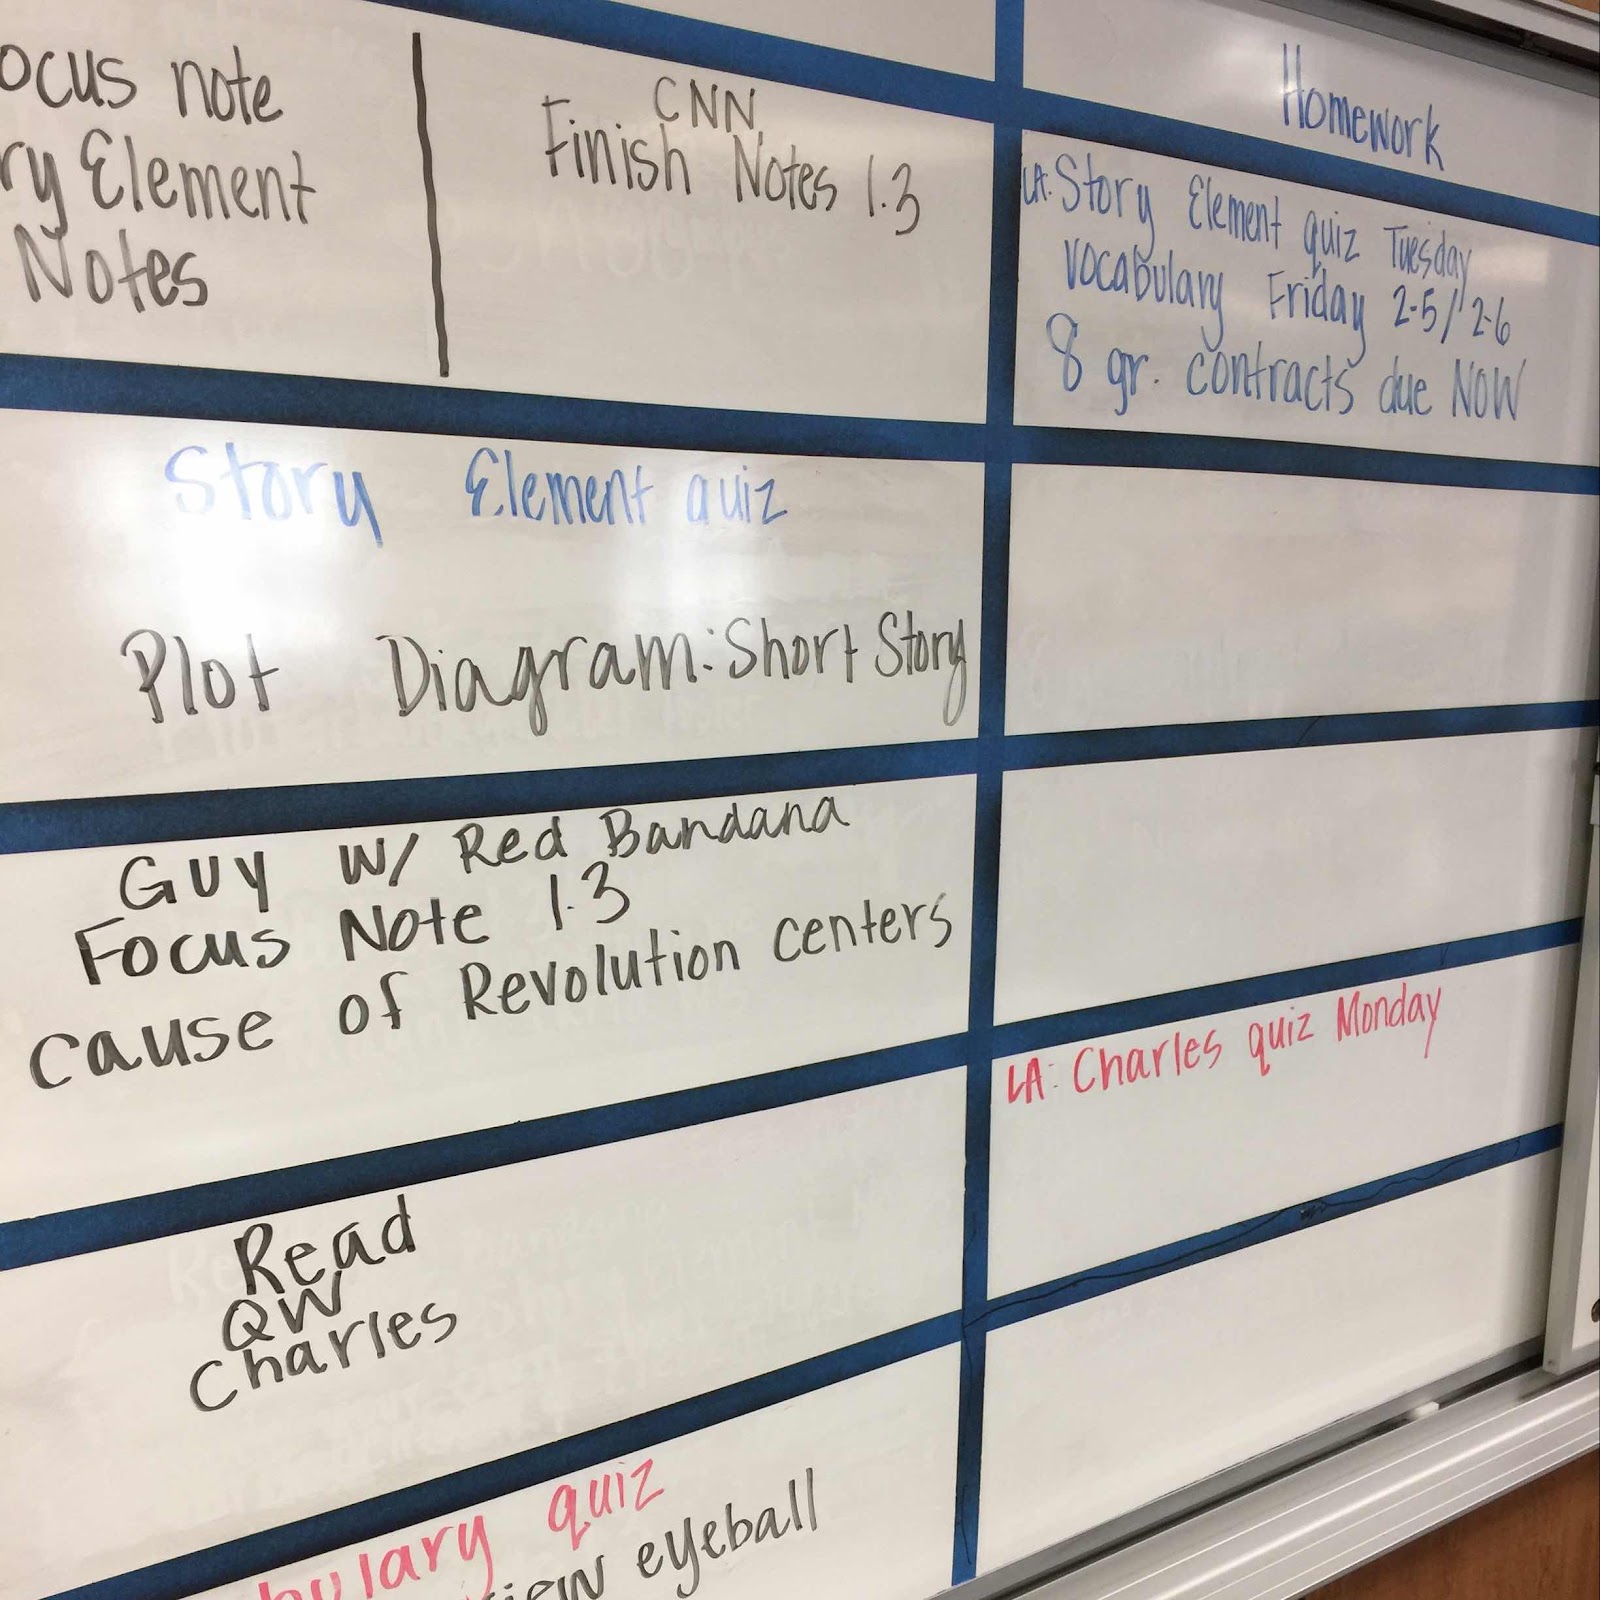 ocus note
ry Element
Notes
CNN,
Finish Notes 1.3
Homework
LA: Story Element quiz Tuesday
Vocabulary Friday 2-5/2-6
8 gr. contracts due NOW
Story Element quiz
Plot Diagram: Short Story
Guy w/ Red Bandana
Focus Note 1.3
Cause of Revolution centers
LA: Charles quiz Monday
Read
QW
Charles
bulary quiz
iew eyeball